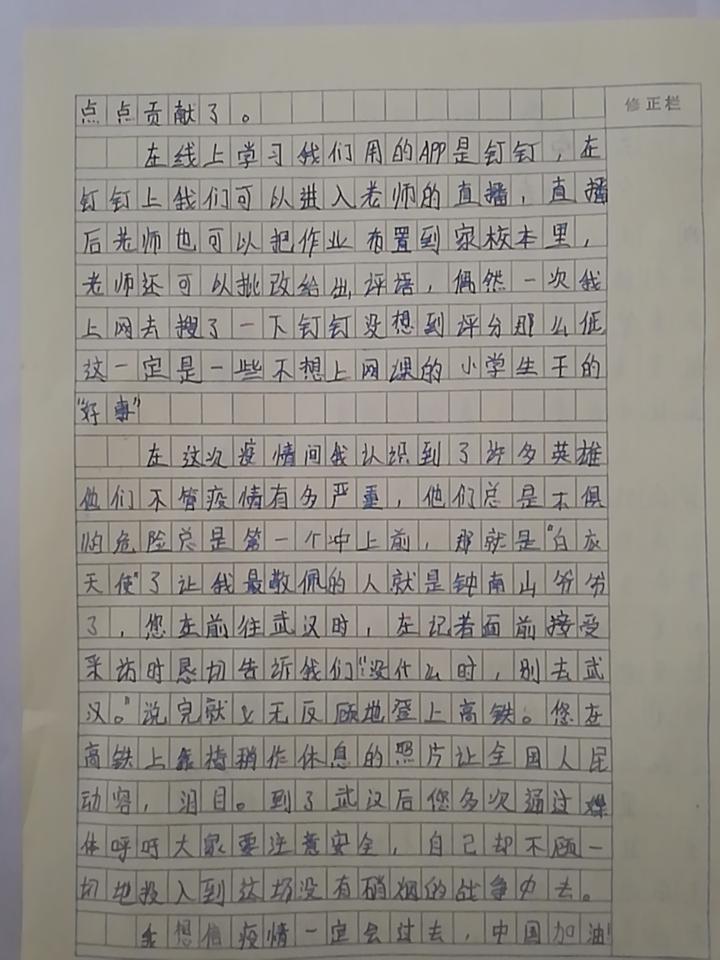 修正栏
点点贡献了。
在线上学习我们用的APP是钉钉，在
钉钉上我们可以进入老师的直播，直播
后老师也可以把作业布置到家校本里，
老师还可以批改给出评语，偶然一次我
上网去搜了一下钉钉没想到评分那么低
这一定是一些不想上网课的小学生干的
“好事”
在这次疫情间我认识到了许多英雄
他们不管疫情有多严重，他们总是不惧
怕危险总是第一个冲上前，那就是“白衣
天使”了让我最敬佩的人就是钟南山爷爷
了，您在前往武汉时，在记者面前接受
采访时恳切告诉我们“没什么时，别去武
汉。”说完就义无反顾地登上高铁。您在
高铁上靠椅稍作休息的照片让全国人民
动容，泪目。到了武汉后您多次通过媒
体呼吁大家要注意安全，自己却不顾一
切地投入到这场没有硝烟的战争中去。
我想信疫情一定会过去，中国加油！